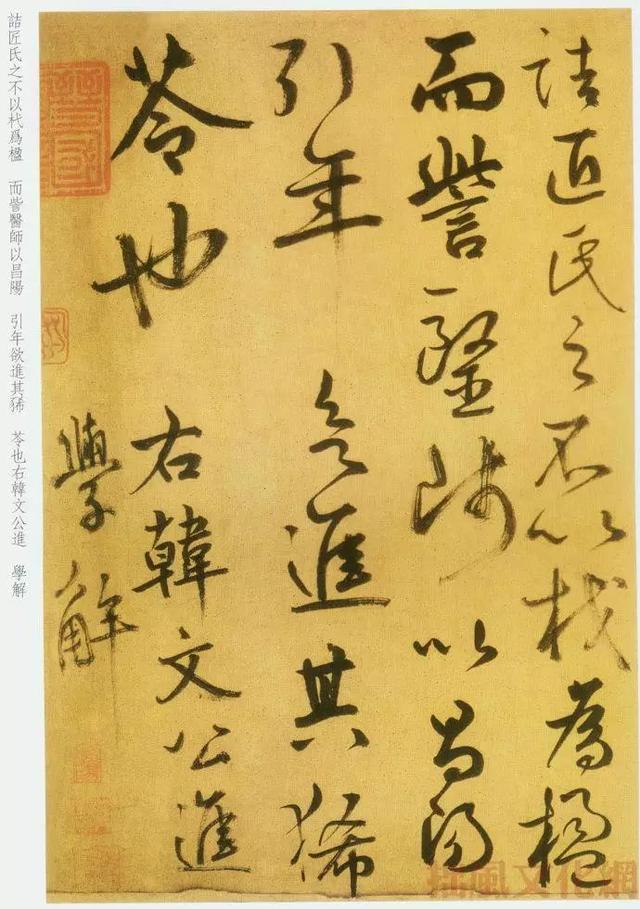 詰匠氏之不以杙為楹
而訾醫師以昌陽
引年欲進其豨
苓也
右韓文公進
學解
詰匠氏之不以杙爲楹 而訾醫師以昌陽 引年欲進其豨 苓也右韓文公進 學解